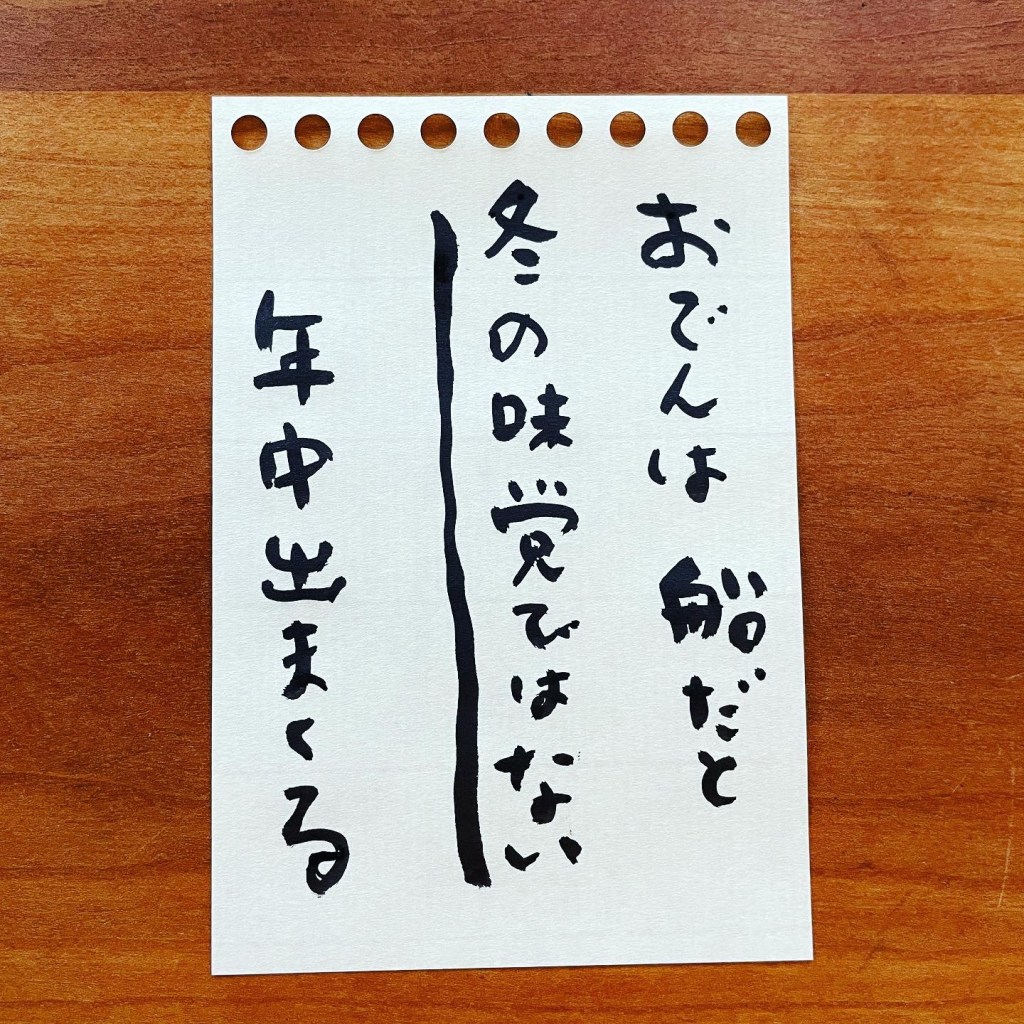 おでんは船だと
冬の味覚ではない
年中出まくる